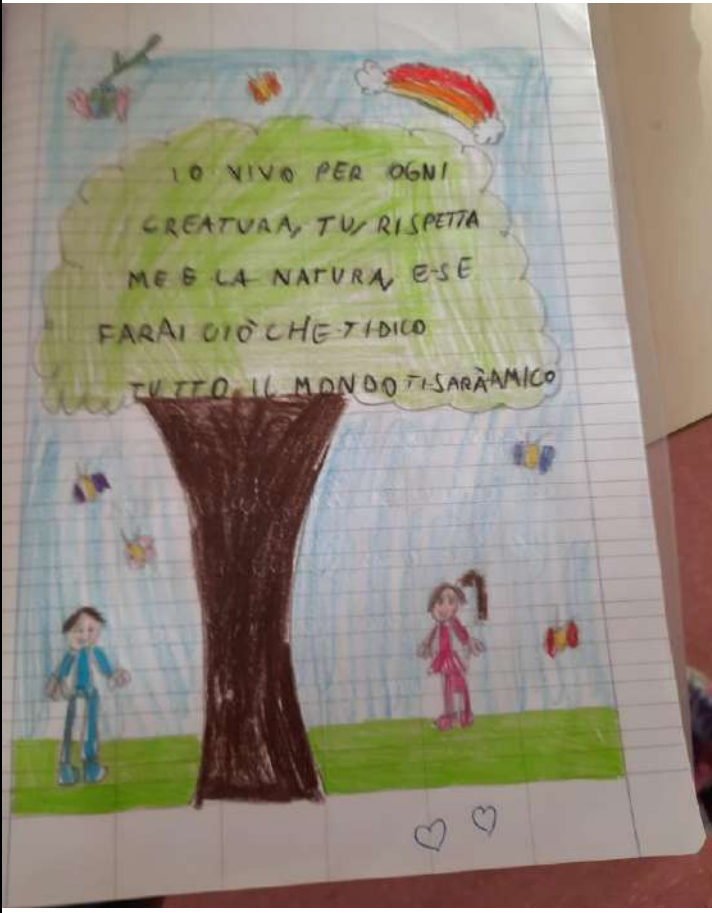 IO VIVO PER OGNI
CREATURA, TU, RISPETTA
ME E LA NATURA, E SE
FARAI CIÒ CHE TI DICO
TUTTO IL MONDO TI SARÀ AMICO